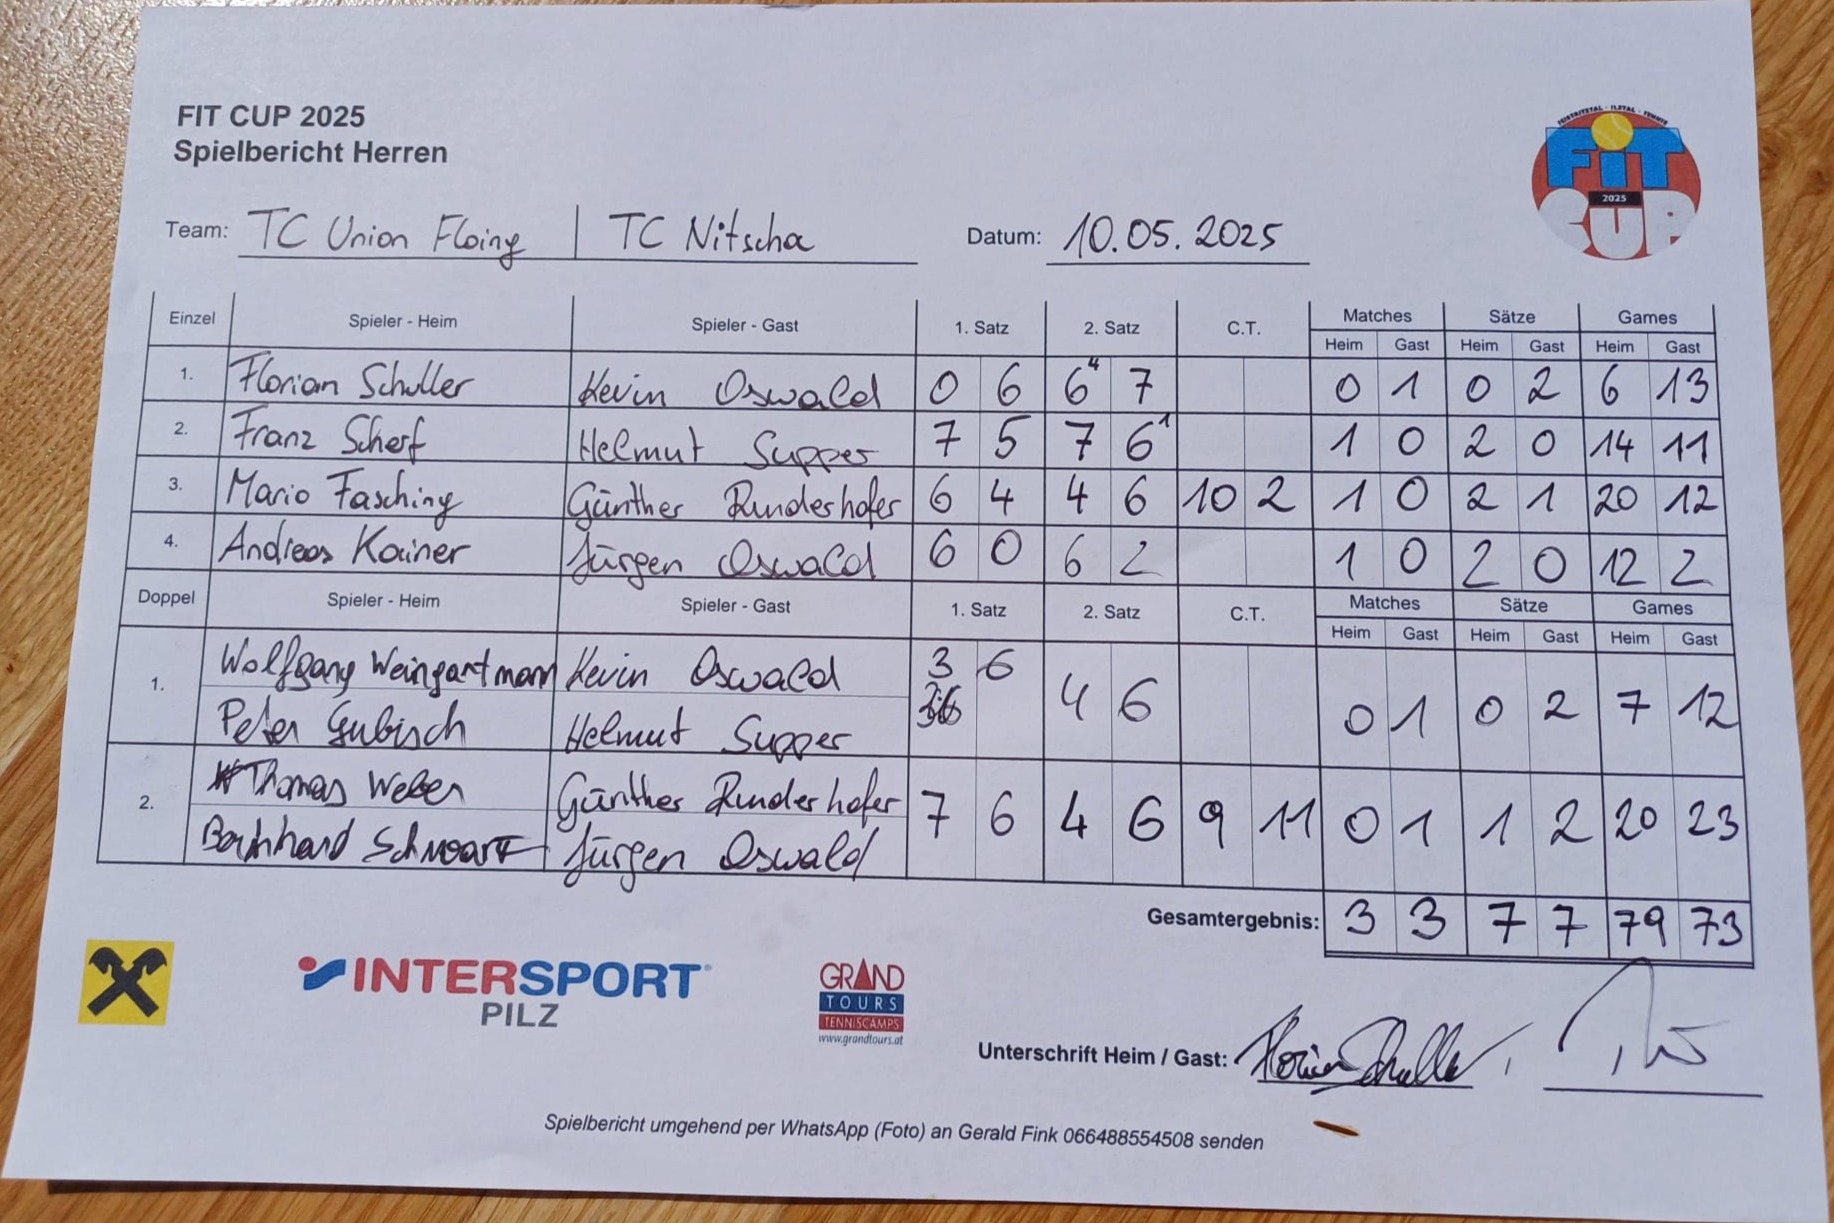 FIT CUP 2025
Spielbericht Herren
FEISTRITZTAL - ILZTAL - TENNIS
FiT
2025
CUP
Team: TC Union Floing | TC Nitscha Datum: 10.05.2025
Einzel Spieler - Heim Spieler - Gast 1. Satz 2. Satz C.T. Matches Sätze Games
Heim Gast Heim Gast Heim Gast
1. Florian Schuller Kevin Oswald 0 6 6⁴ 7 0 1 0 2 6 13
2. Franz Scherf Helmut Supper 7 5 7 6¹ 1 0 2 0 14 11
3. Mario Fasching Günther Runderhofer 6 4 4 6 10 2 1 0 2 1 20 12
4. Andreas Kainer Jürgen Oswald 6 0 6 2 1 0 2 0 12 2
Doppel Spieler - Heim Spieler - Gast 1. Satz 2. Satz C.T. Matches Sätze Games
Heim Gast Heim Gast Heim Gast
1. Wolfgang Weingartmann Kevin Oswald 3 6 4 6 0 1 0 2 7 12
Peter Gubisch Helmut Supper
2. Thomas Weber Günther Runderhofer 7 6 4 6 9 11 0 1 1 2 20 23
Bernhard Schwarz Jürgen Oswald
Gesamtergebnis: 3 3 7 7 79 73
INTERSPORT
PILZ
GRAND
TOURS
TENNISCAMPS
www.grandtours.at
Unterschrift Heim / Gast: Florian Schuller
Spielbericht umgehend per WhatsApp (Foto) an Gerald Fink 066488554508 senden